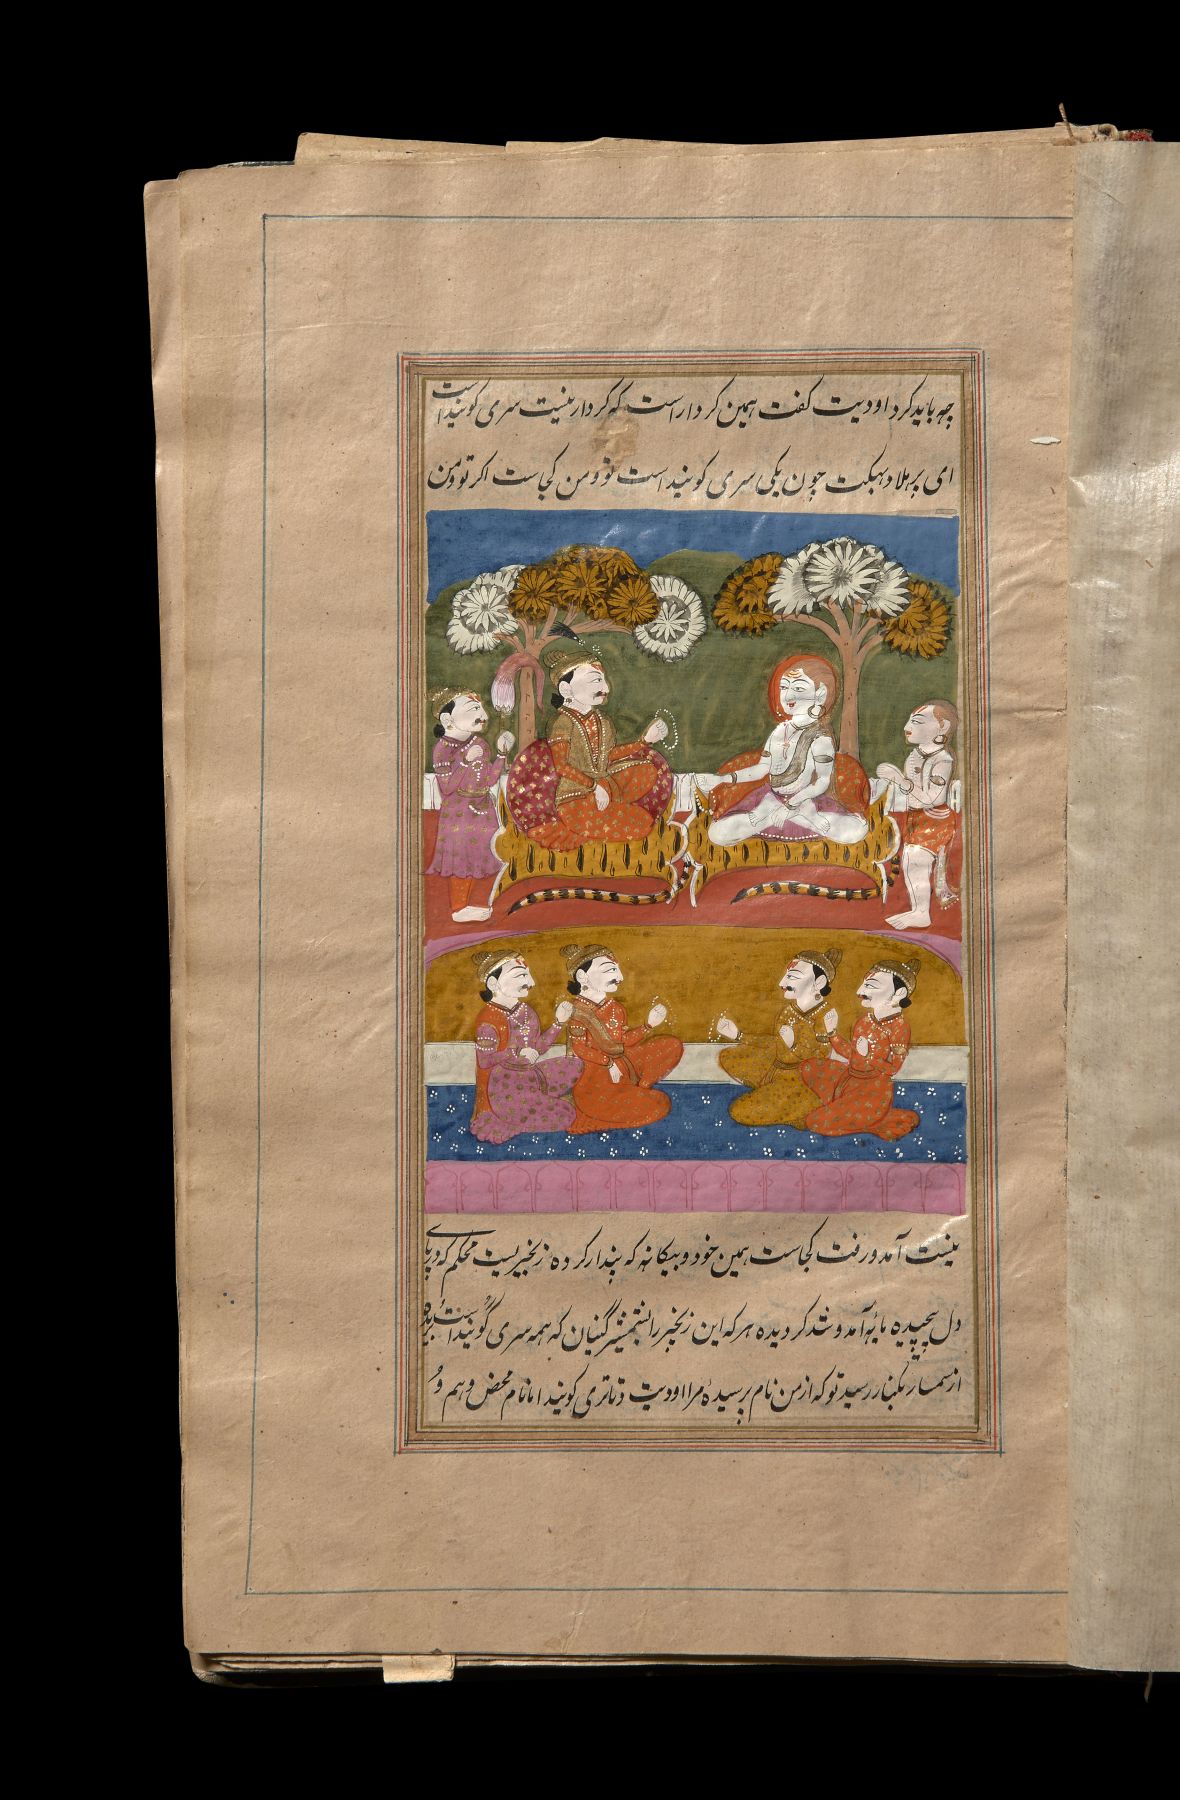 چه باید کرد اودیت کفت همین کردار است که کردار نیست سری کوبند است
ای پرهلاد بهکت چون یکی سری کوبند است تو و من کجاست اکر تو و من
نیست آمد و رفت کجاست همین خود و بیکانه که پندار کرده زنجیریست محکم که در پای
دل پیچیده مایهٔ آمد و شد کردیده هر که این زنجیر را بشمشیر گنیان که همه سری گوبند است بریده
از سمسار بکنار رسید تو که از من نام پرسیدهٔ مرا اودیت دتاتری کویند اما نام محض و هم و